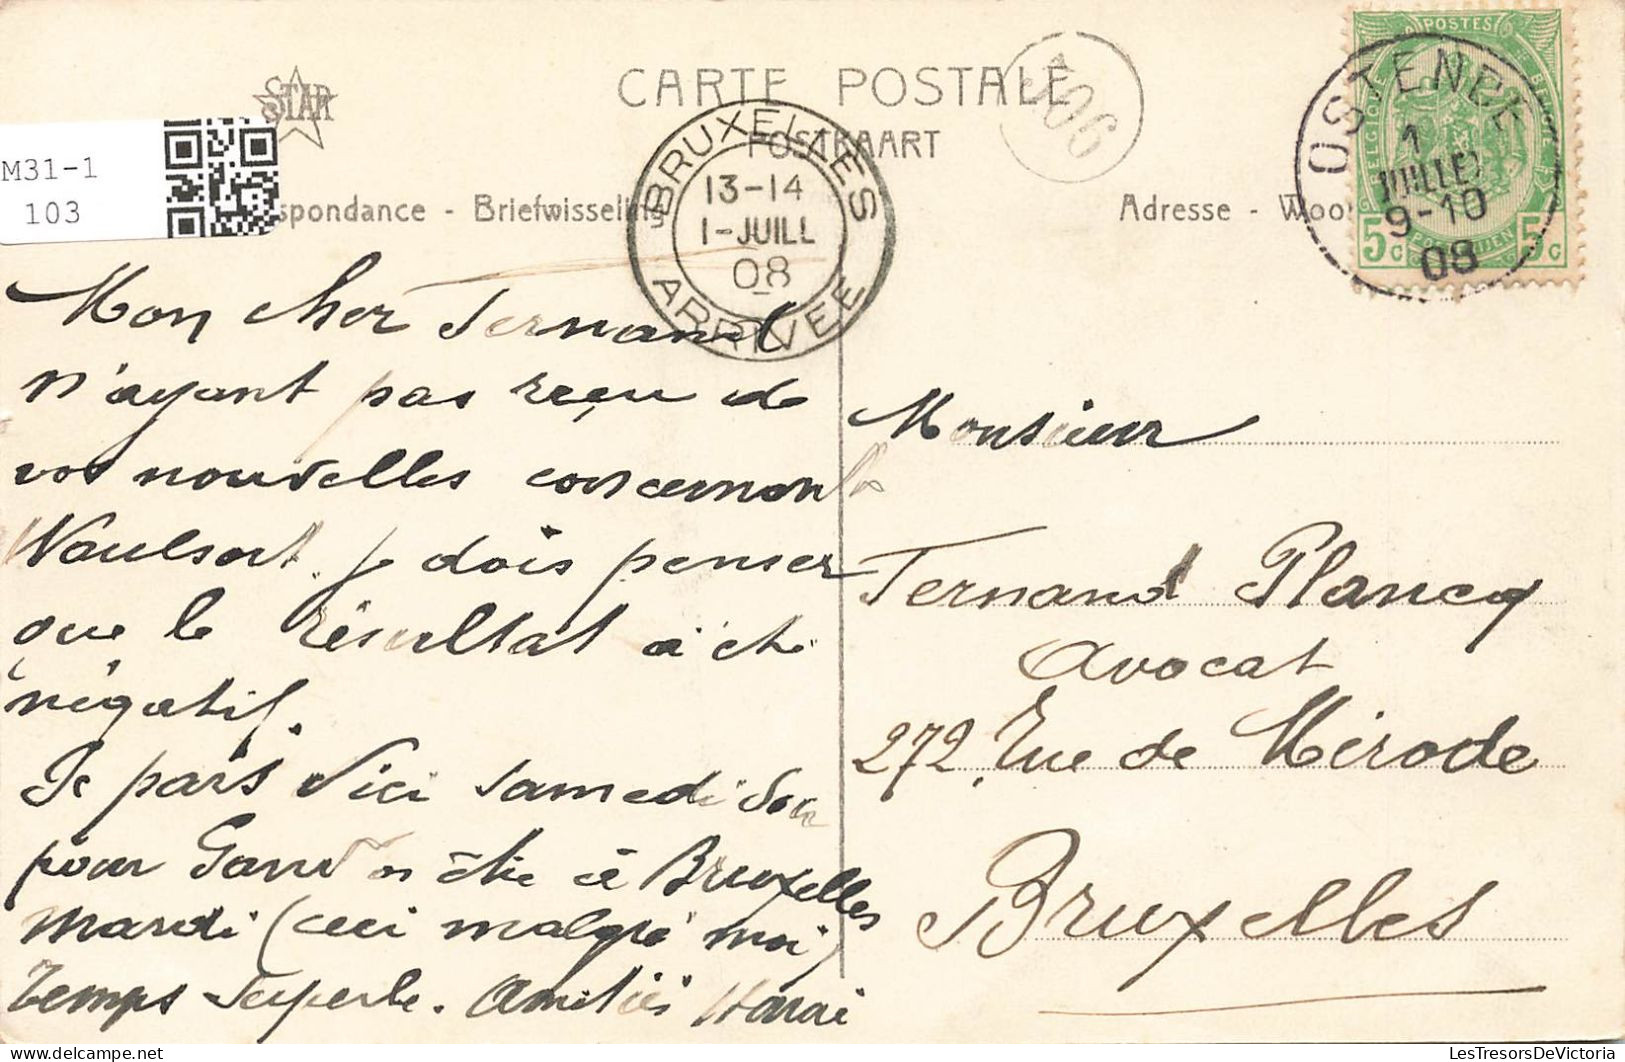 STAR
CARTE POSTALE
POSTKAART
306
M31-1
103
spondance - Briefwisseling
Adresse - Woo
BRUXELLES
13-14
1-JUILL
08
ARRIVEE
OSTENDE
1
JUILLET
9-10
08
POSTES
BELGIQUE
BELGIË
5c 5c
POSTERIJEN
Mon cher Fernand
n'ayant pas reçu de
vos nouvelles concernant
Waulsort je dois penser
que le résultat a été
négatif.
Je pars d'ici samedi
pour Gand être à Bruxelles
mardi (ceci malgré moi)
Temps superbe. Amitiés
Monsieur
Fernand Plancq
Avocat
272, Rue de Mérode
Bruxelles
LesTresorsDeVictoria